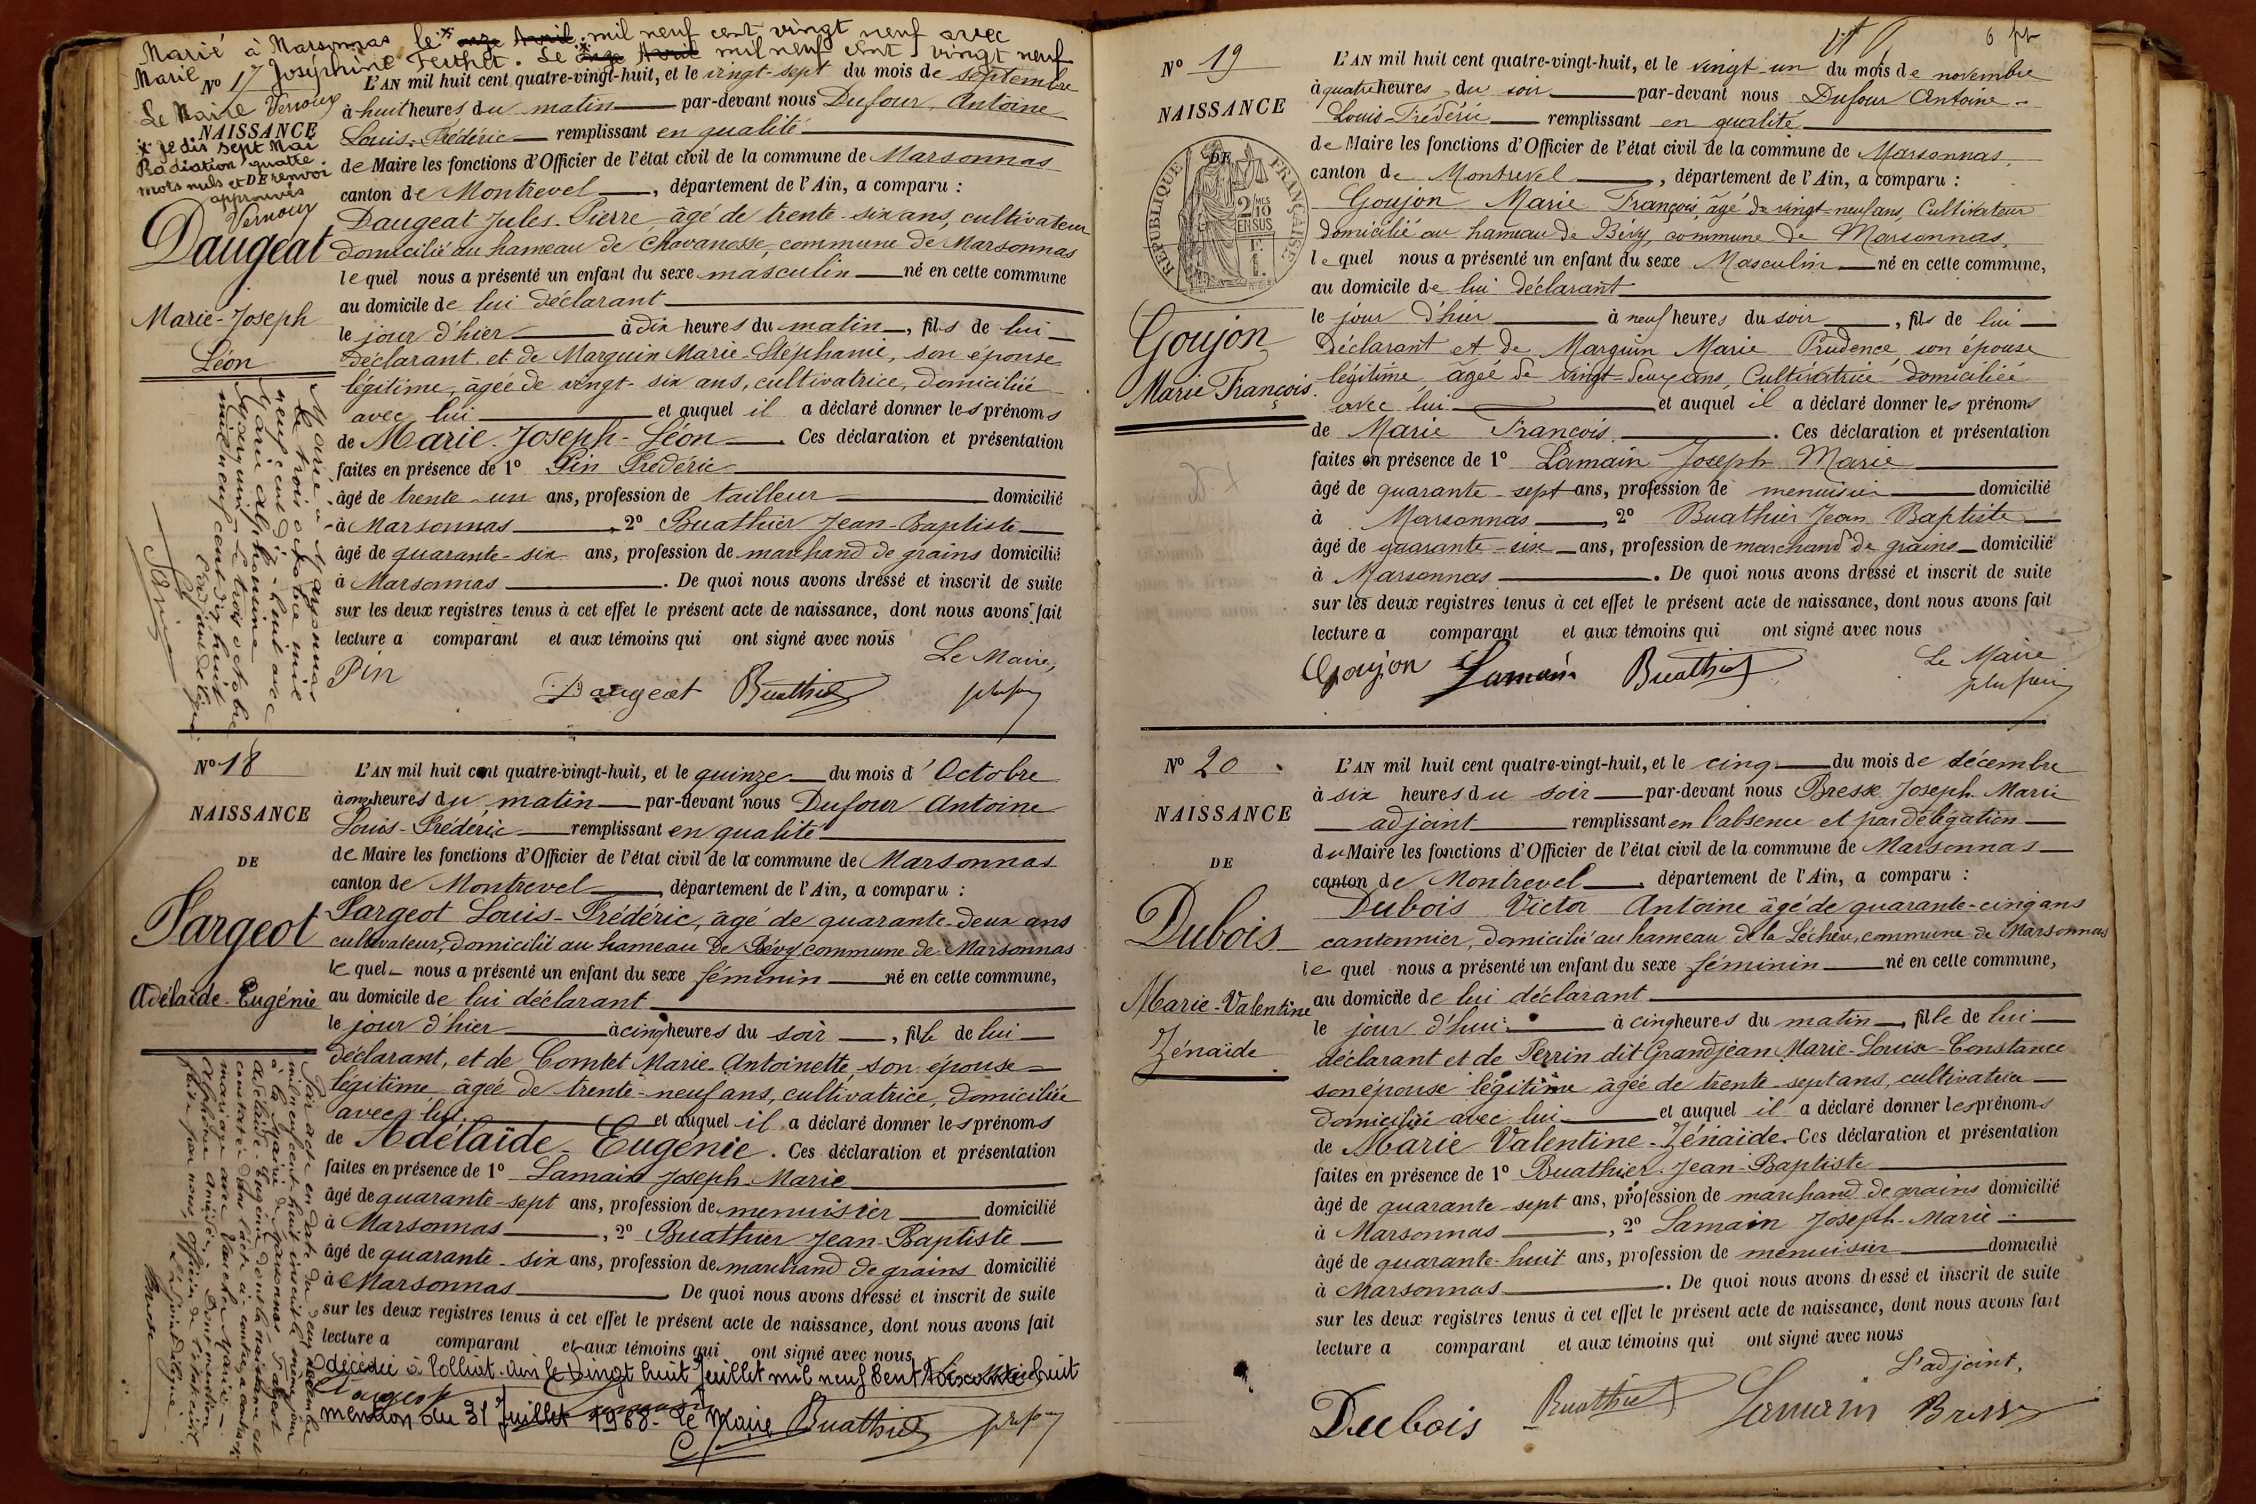 Marié à Marsonnas le onze Avril mil neuf cent vingt neuf avec
Marie Joséphine. Le onze Avril mil neuf cent vingt neuf
Le Maire Vernoux
N° 17
NAISSANCE
DE
* je dis sept Mai
Radiation quatre
mots nuls et renvoi
approuvés
Vernoux
Daugeat
Marie-Joseph
Léon
L'AN mil huit cent quatre-vingt-huit, et le vingt-sept du mois de septembre
à huit heures du matin par-devant nous Dufour Antoine
Louis-Frédéric remplissant en qualité
de Maire les fonctions d'Officier de l'état civil de la commune de Marsonnas
canton de Montrevel, département de l'Ain, a comparu :
Daugeat Jules-Pierre, âgé de trente-six ans, cultivateur
domicilié au hameau de Chavanosse, commune de Marsonnas
lequel nous a présenté un enfant du sexe masculin né en cette commune
au domicile de lui déclarant
le jour d'hier à dix heures du matin, fils de lui
déclarant et de Marguin Marie-Stéphanie, son épouse
légitime, âgée de vingt-six ans, cultivatrice, domiciliée
avec lui et auquel il a déclaré donner les prénoms
de Marie-Joseph-Léon. Ces déclaration et présentation
faites en présence de 1° Pin Frédéric
âgé de trente-un ans, profession de tailleur domicilié
à Marsonnas, 2° Buathier Jean-Baptiste
âgé de quarante-six ans, profession de marchand de grains domicilié
à Marsonnas. De quoi nous avons dressé et inscrit de suite
sur les deux registres tenus à cet effet le présent acte de naissance, dont nous avons fait
lecture a comparant et aux témoins qui ont signé avec nous
Le Maire,
Pin Daugeat Buathier
Marié à Marsonnas
le trois octobre mil
neuf cent dix-huit avec
Marie Alphonsine
Marguin le trois octobre
mil neuf cent dix huit
L'adjoint délégué
N° 18
NAISSANCE
DE
Pargeot
Adélaïde-Eugénie
L'AN mil huit cent quatre-vingt-huit, et le quinze du mois d'Octobre
à onze heures du matin par-devant nous Dufour Antoine
Louis-Frédéric remplissant en qualité
de Maire les fonctions d'Officier de l'état civil de la commune de Marsonnas
canton de Montrevel, département de l'Ain, a comparu :
Pargeot Louis-Frédéric, âgé de quarante-deux ans
cultivateur, domicilié au hameau de Bévy commune de Marsonnas
lequel nous a présenté un enfant du sexe féminin né en cette commune,
au domicile de lui déclarant
le jour d'hier à cinq heures du soir, fille de lui
déclarant, et de Comtet Marie-Antoinette, son épouse
légitime, âgée de trente-neuf ans, cultivatrice, domiciliée
avec lui et auquel il a déclaré donner les prénoms
de Adélaïde-Eugénie. Ces déclaration et présentation
faites en présence de 1° Lamain Joseph-Marie
âgé de quarante-sept ans, profession de menuisier domicilié
à Marsonnas, 2° Buathier Jean-Baptiste
âgé de quarante-six ans, profession de marchand de grains domicilié
à Marsonnas De quoi nous avons dressé et inscrit de suite
sur les deux registres tenus à cet effet le présent acte de naissance, dont nous avons fait
lecture a comparant et aux témoins qui ont signé avec nous
décédée à Polliat-Ain le Vingt huit Juillet mil neuf Cent Soixante huit
mention du 31 Juillet 1968 - le Maire
Buathier
Par acte en date du deux
mil neuf cent huit inscrit le même jour
à la Mairie de Marsonnas Pargeot
Adélaïde-Eugénie dont la naissance est
constatée dans l'acte ci-contre a contracté
mariage avec
Dont mention
faite par nous, officier de l'état civil
L'adjoint délégué
N° 19
NAISSANCE
DE
RÉPUBLIQUE FRANÇAISE
2 MES
10
EN SUS
Goujon
Marie François
L'AN mil huit cent quatre-vingt-huit, et le vingt-un du mois de novembre
à quatre heures du soir par-devant nous Dufour Antoine
Louis-Frédéric remplissant en qualité
de Maire les fonctions d'Officier de l'état civil de la commune de Marsonnas,
canton de Montrevel, département de l'Ain, a comparu :
Goujon Marie François, âgé de vingt-neuf ans, Cultivateur
domicilié au hameau de Bévy, commune de Marsonnas,
lequel nous a présenté un enfant du sexe Masculin né en cette commune,
au domicile de lui déclarant
le jour d'hier à neuf heures du soir, fils de lui
déclarant et de Marguin Marie Prudence, son épouse
légitime, agée de vingt-deux ans, Cultivatrice domiciliée
avec lui et auquel il a déclaré donner les prénoms
de Marie François. Ces déclaration et présentation
faites en présence de 1° Lamain Joseph Marie
âgé de quarante-sept ans, profession de menuisier domicilié
à Marsonnas, 2° Buathier Jean Baptiste
âgé de quarante-six ans, profession de marchand de grains domicilié
à Marsonnas. De quoi nous avons dressé et inscrit de suite
sur les deux registres tenus à cet effet le présent acte de naissance, dont nous avons fait
lecture a comparant et aux témoins qui ont signé avec nous
Le Maire
Goujon Lamain Buathier
N° 20
NAISSANCE
DE
Dubois
Marie-Valentine
Zénaïde
L'AN mil huit cent quatre-vingt-huit, et le cinq du mois de décembre
à six heures du soir par-devant nous Bresse Joseph Marie
adjoint remplissant en l'absence et par délégation
du Maire les fonctions d'Officier de l'état civil de la commune de Marsonnas
canton de Montrevel, département de l'Ain, a comparu :
Dubois Victor Antoine âgé de quarante-cinq ans
cantonnier, domicilié au hameau de la Léchère, commune de Marsonnas
lequel nous a présenté un enfant du sexe féminin né en cette commune,
au domicile de lui déclarant
le jour d'hui à cinq heures du matin, fille de lui
déclarant et de Perrin dit Grandjean Marie-Louise-Constance
son épouse légitime âgée de trente-sept ans, cultivatrice
domiciliée avec lui et auquel il a déclaré donner les prénoms
de Marie Valentine-Zénaïde. Ces déclaration et présentation
faites en présence de 1° Buathier Jean-Baptiste
âgé de quarante-sept ans, profession de marchand de grains domicilié
à Marsonnas, 2° Lamain Joseph-Marie
âgé de quarante-huit ans, profession de menuisier domicilié
à Marsonnas. De quoi nous avons dressé et inscrit de suite
sur les deux registres tenus à cet effet le présent acte de naissance, dont nous avons fait
lecture a comparant et aux témoins qui ont signé avec nous
L'adjoint,
Dubois Buathier Lamain Bresse